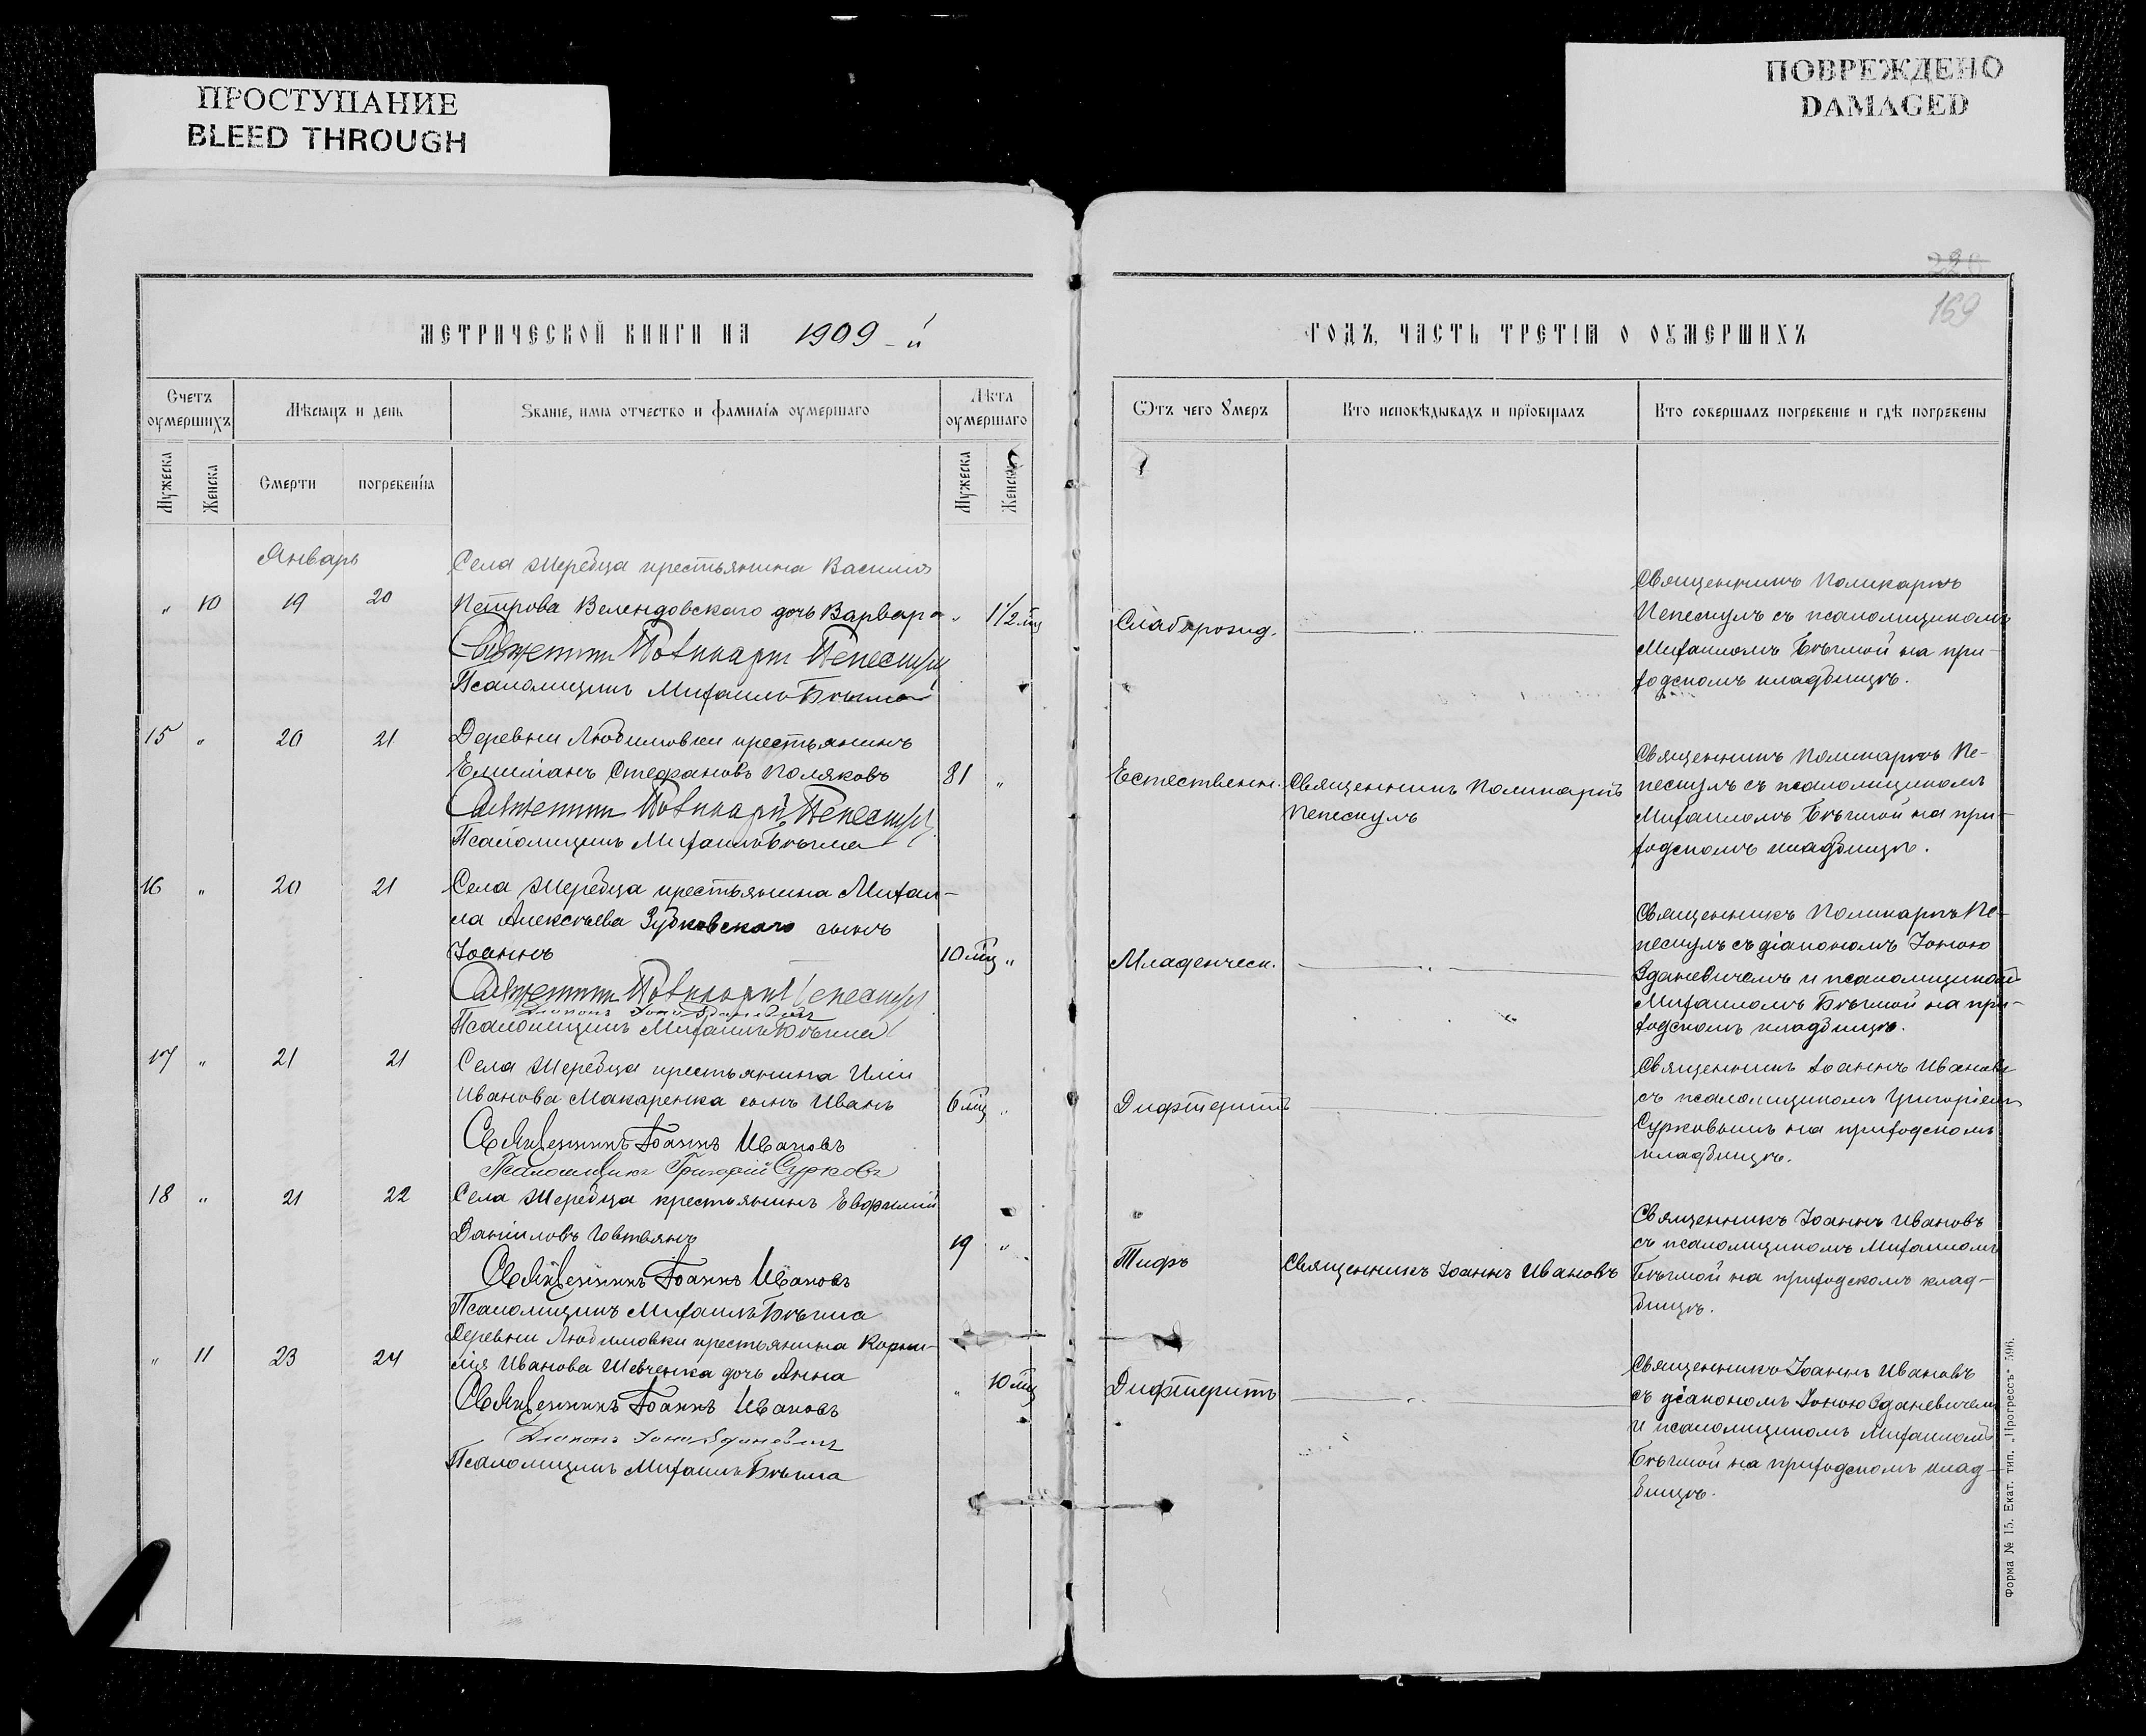 ПРОСТУПАНИЕ
BLEED THROUGH
ПОВРЕЖДЕНО
DAMAGED
169
МЕТРИЧЕСКОЙ КНИГИ НА 1909-й
ГОДЪ, ЧАСТЬ ТРЕТІѦ О ОУМЕРШИХЪ
Счетъ оумершихъ
Мѣсѧцъ и день
Званіе, имѧ отчество и фамиліѧ оумершаго
Лѣта оумершаго
Ѿтъ чего Умеръ
Кто исповѣдывадъ и прїобщалъ
Кто совершалъ погребеніе и гдѣ погребены
Мужеска
Женска
Смерти
погребеніѧ
Мужеска
Женска
Январь
Села Жеребца крестьянина Василія
" 10 19 20 Петрова Велендовскаго дочь Варвара " 1 1/2 мц
Священникъ Поликарпъ Пепескулъ
Псаломщикъ Михаилъ Бѣгма
Слаборожд.
Священникъ Поликарпъ
Пепескулъ съ псаломщикомъ
Михаиломъ Бѣгмой на при-
ходскомъ кладбищѣ.
15 " 20 21 Деревни Любимовки крестьянинъ
Емиліанъ Стефановъ Поляковъ 81 "
Священникъ Поликарпъ Пепескулъ
Псаломщикъ Михаилъ Бѣгма
Естественн.
Священникъ Поликарпъ
Пепескулъ
Священникъ Поликарпъ Пе-
пескулъ съ псаломщикомъ
Михаиломъ Бѣгмой на при-
ходскомъ кладбищѣ.
16 " 20 21 Села Жеребца крестьянина Михаи-
ла Алексѣева Зубковскаго сынъ
Іоаннъ 10 мц "
Священникъ Поликарпъ Пепескулъ
Діаконъ Іона Зданевичъ
Псаломщикъ Михаилъ Бѣгма
Младенческ.
Священникъ Поликарпъ Пе-
пескулъ съ діакономъ Іоною
Зданевичемъ и псаломщикомъ
Михаиломъ Бѣгмой на при-
ходскомъ кладбищѣ.
17 " 21 21 Села Жеребца крестьянина Иліи
Иванова Макаренка сынъ Иванъ 6 мц "
Священникъ Іоаннъ Ивановъ
Псаломщикъ Григорій Сурковъ
Дифтеритъ
Священникъ Іоаннъ Ивановъ
съ псаломщикомъ Григоріемъ
Сурковымъ на приходскомъ
кладбищѣ.
18 " 21 22 Села Жеребца крестьянинъ Евфимій
Даніиловъ 19 "
Священникъ Іоаннъ Ивановъ
Псаломщикъ Михаилъ Бѣгма
Тифъ
Священникъ Іоаннъ Ивановъ
Священникъ Іоаннъ Ивановъ
съ псаломщикомъ Михаиломъ
Бѣгмой на приходскомъ клад-
бищѣ.
Деревни Любимовки крестьянина Корни-
" 11 23 24 лія Иванова Шевченка дочь Анна " 10 мц
Священникъ Іоаннъ Ивановъ
Діаконъ Іона Зданевичъ
Псаломщикъ Михаилъ Бѣгма
Дифтеритъ
Священникъ Іоаннъ Ивановъ
съ діакономъ Іоною Зданевичемъ
и псаломщикомъ Михаиломъ
Бѣгмой на приходскомъ клад-
бищѣ.
Форма № 15. Екат. тип. „Прогрессъ" 596.